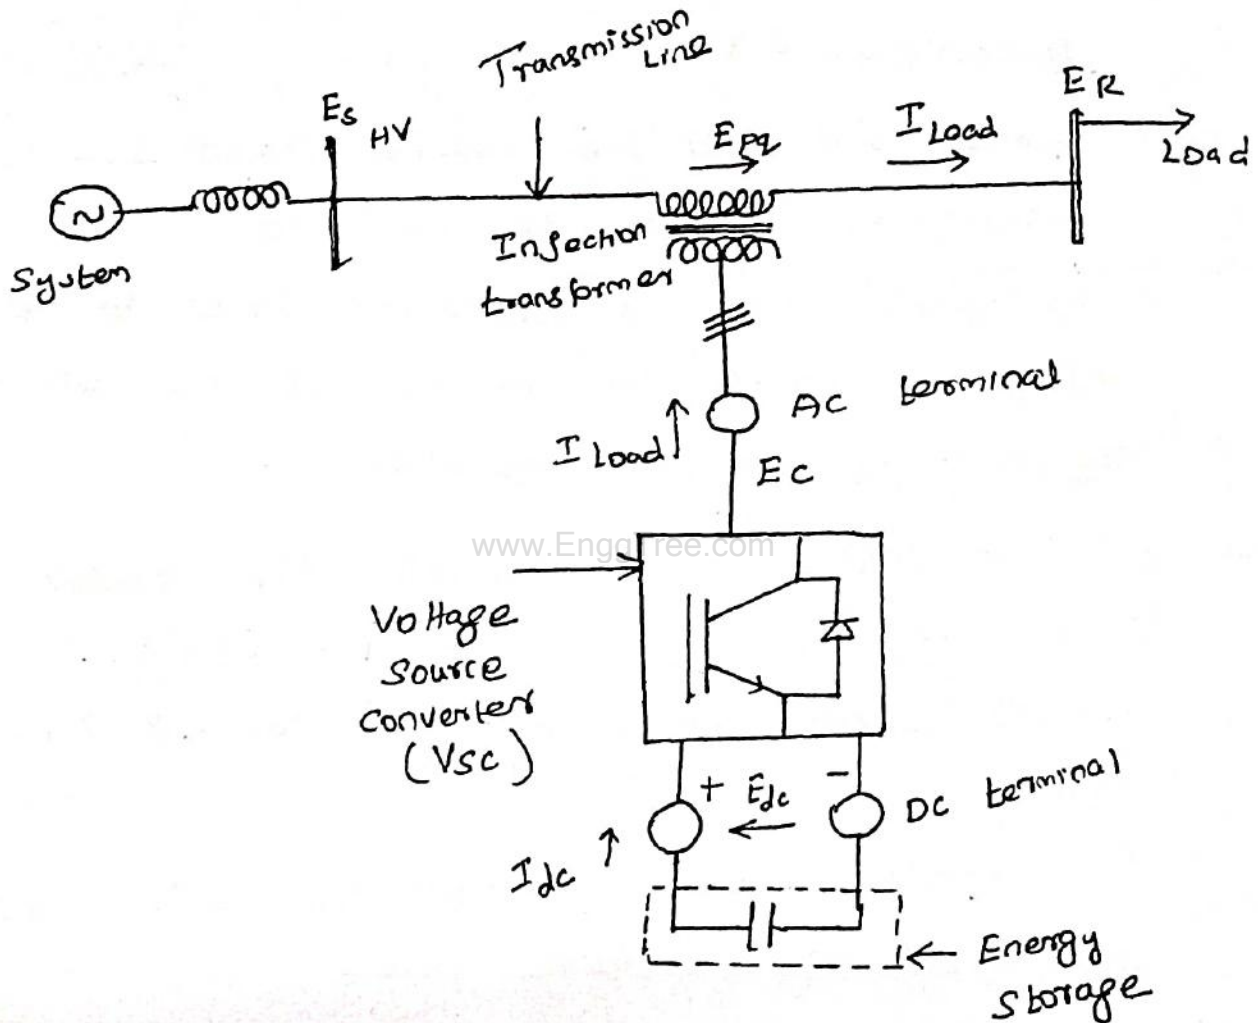 Transmission
Line
Es
HV
Epq
I Load
ER
Load
System
Injection
transformer
AC terminal
I Load
Ec
www.EnggTree.com
Voltage
Source
Converter
(VSC)
+
Edc
-
DC terminal
Idc
Energy
Storage